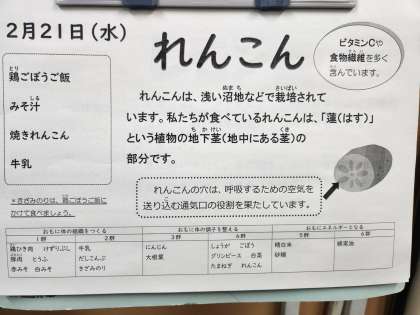 2月21日(水)
れんこん
ビタミンCや
食物繊維を多く
含んでいます。
鶏ごぼうご飯
みそ汁
焼きれんこん
牛乳
*きざみのりは、鶏ごぼうご飯に
かけて食べましょう。
れんこんは、浅い沼地などで栽培されて
います。私たちが食べているれんこんは、「蓮(はす)」
という植物の地下茎(地中にある茎)の
部分です。
れんこんの穴は、呼吸するための空気を
送り込む通気口の役割を果たしています。
おもに体の組織をつくる おもに体の調子を整える おもにエネルギーとなる
1群 2群 3群 4群 5群 6群
鶏ひき肉 けずりぶし 牛乳 にんじん しょうが ごぼう 精白米 綿実油
豚肉 とうふ だしこんぶ 大根葉 グリンピース 白菜 砂糖
赤みそ 白みそ きざみのり たまねぎ れんこん